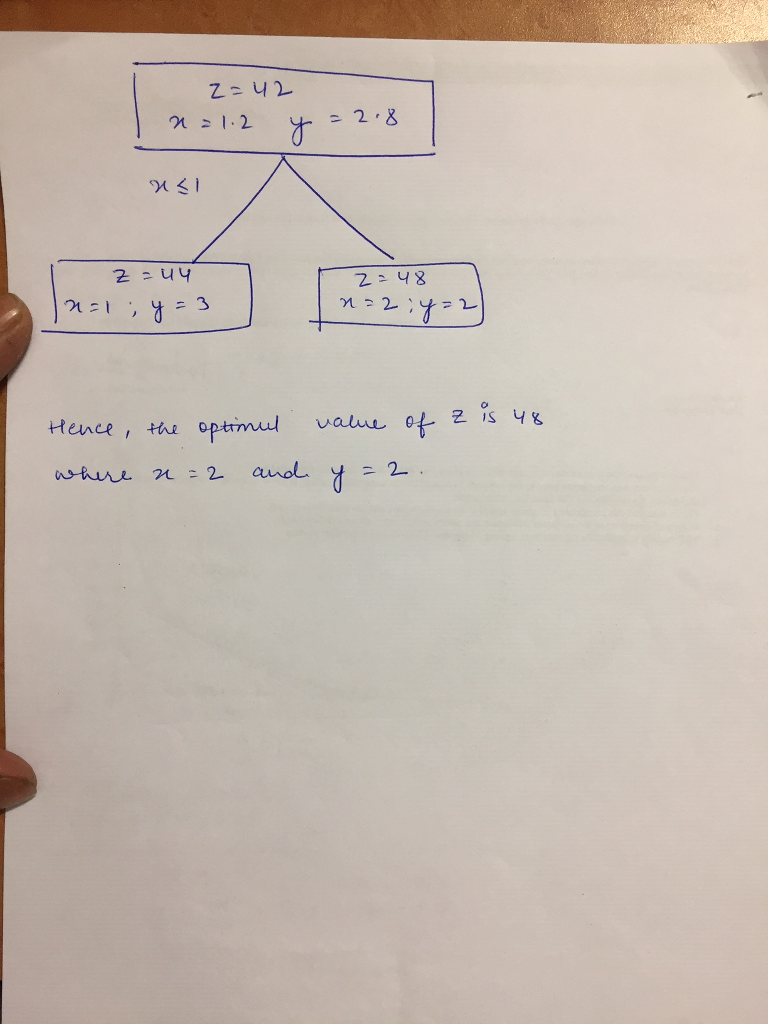 z = 42
x = 1.2 y = 2.8
x ≤ 1
z = 44
x = 1 ; y = 3
z = 48
x = 2 ; y = 2
Hence, the optimul value of z is 48
where x = 2 and y = 2.